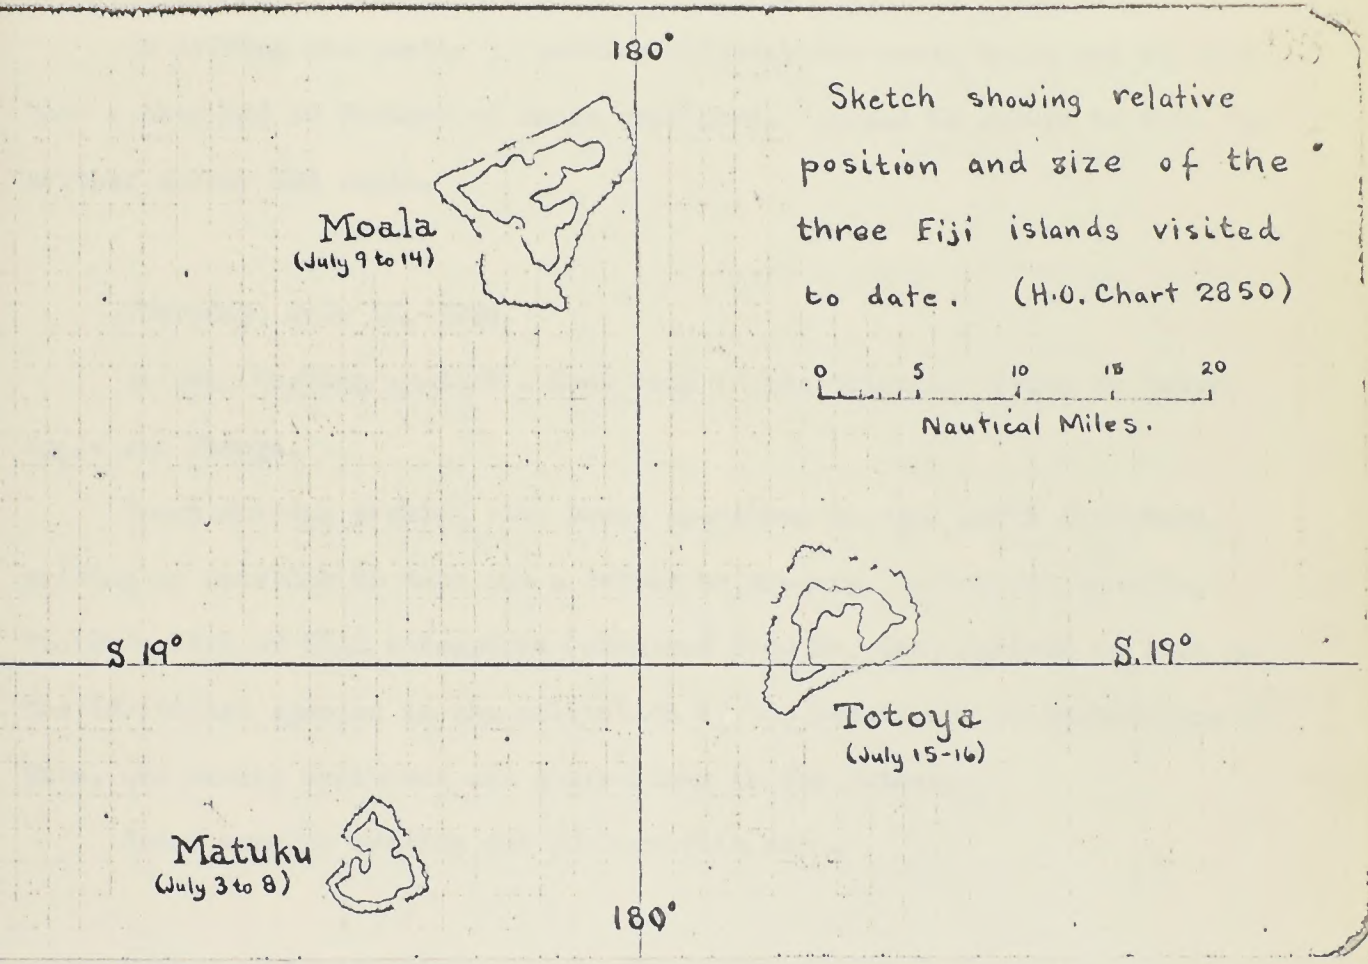 180°
Sketch showing relative
position and size of the
three Fiji islands visited
to date. (H.O. Chart 2850)
0 5 10 15 20
Nautical Miles.
Moala
(July 9 to 14)
S 19°
S. 19°
Totoya
(July 15-16)
Matuku
(July 3 to 8)
180°